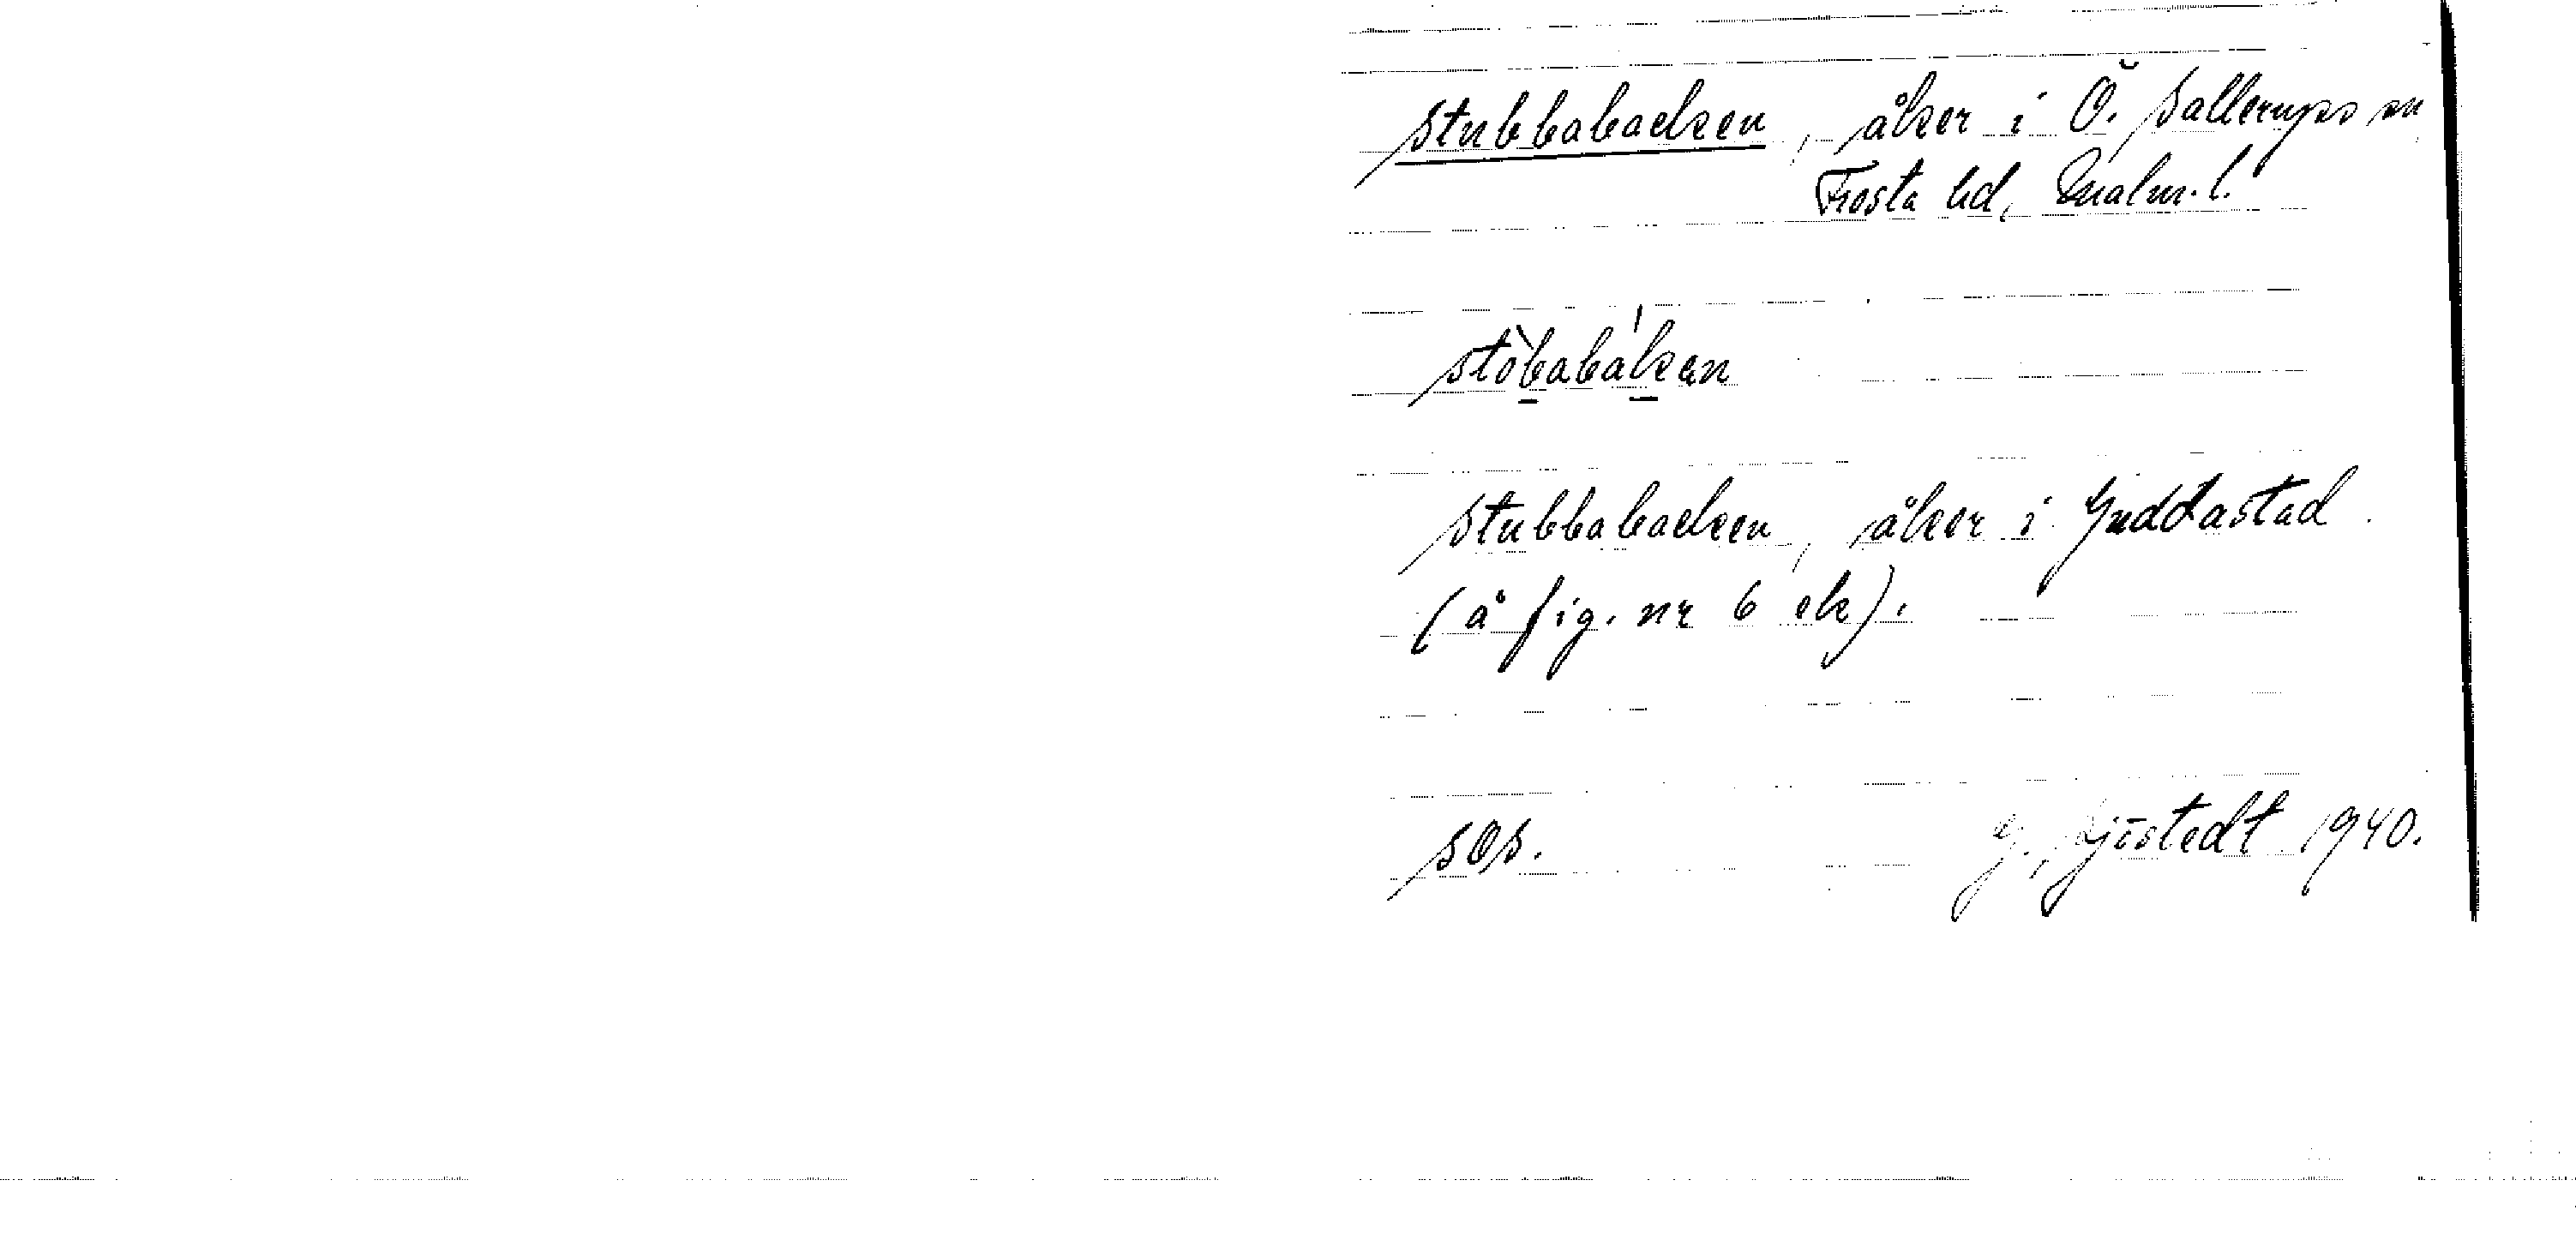 Stubbabacken, åker i Ö. Sallerups sn
Frosta hd, Malm. l.
stòbabákan
Stubbabacken, åker i Guddastad.
(å fig. nr 6 ek).
SOS. 1940.